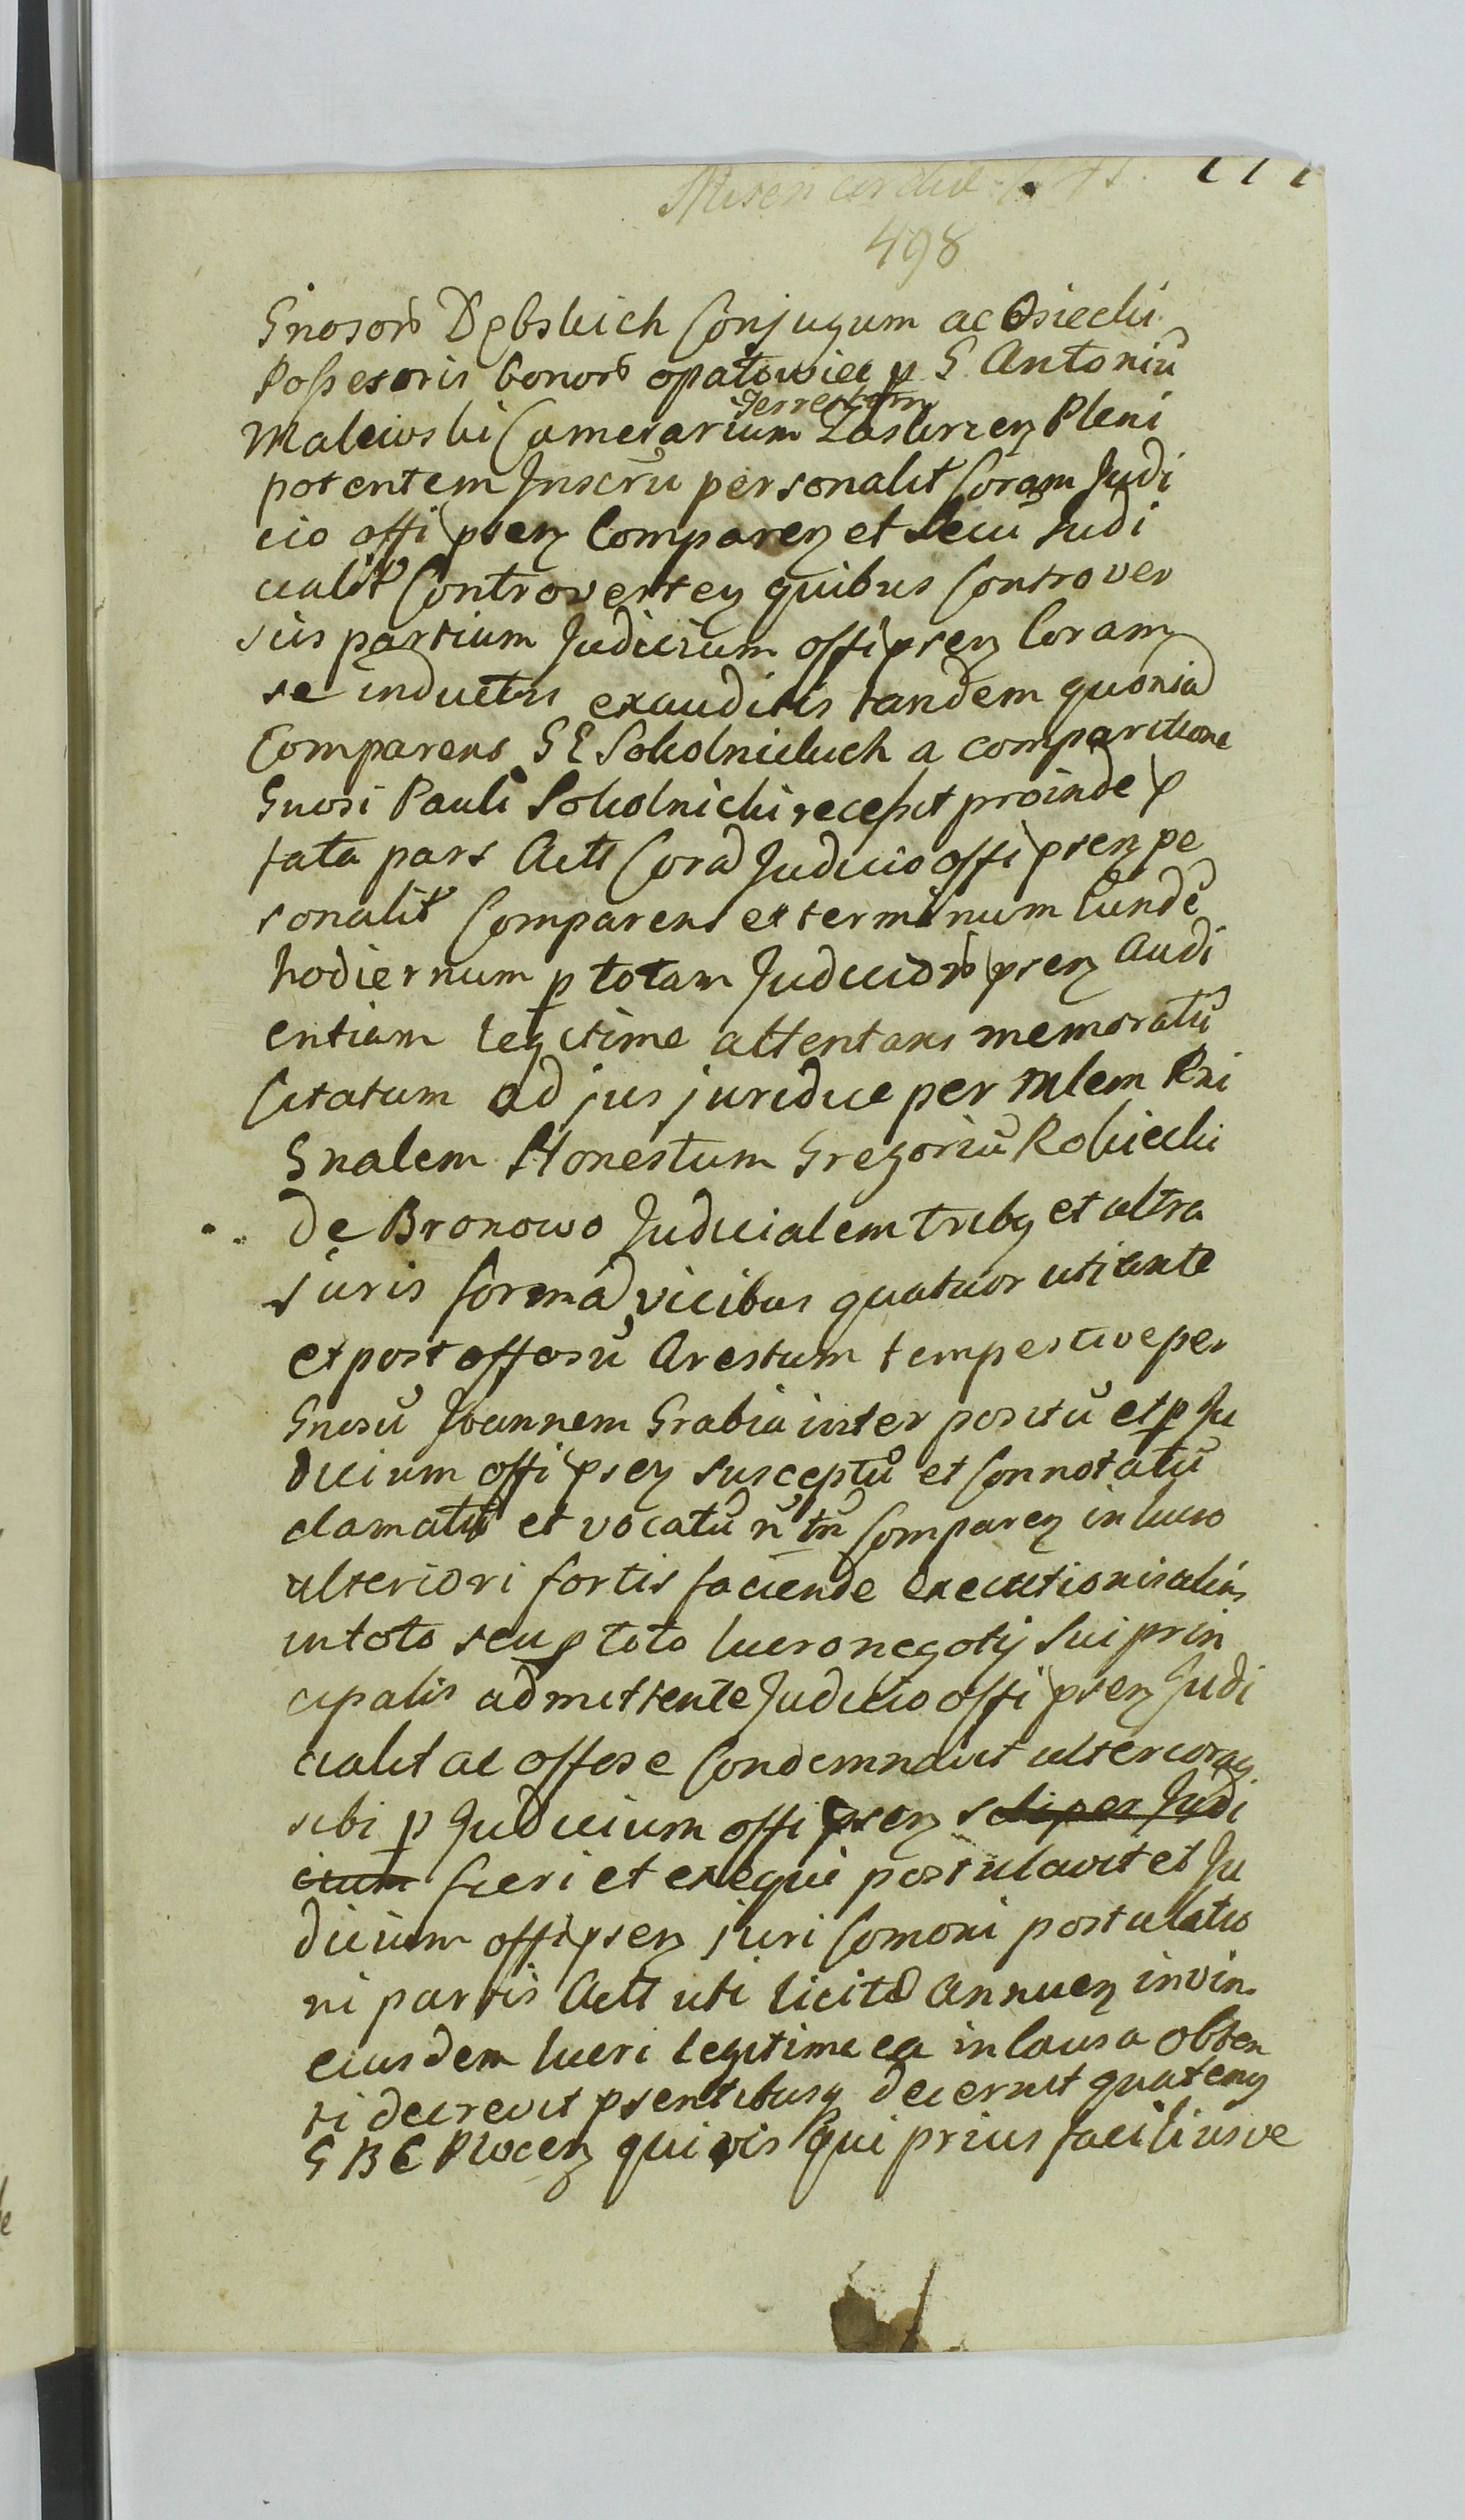 498
Gnosor Dębskich Conjugum ac Osiecki
Possesoris bonor opatowiec p G Antoniu
Terrestrem
Malewski Camerarium Zaskrzen Pleni
potentem Inscru personalit Coram Judi
cio offi psen Comparen et secu Judi
cialit Controverten quibus Controver
siis partium Judicium offi psen Coram
se inductis exauditis tandem quonia
Comparens GE Sokolnickich a comparitione
Gnosi Pauli Sokolnicki recessit proinde p
fata pars Act Cora Judicio offi psen pe
sonalit Comparens et terminum Eunde
hodiernum p totam Judicior psen Audi
entiam legitime attentans memoratu
Citatum ad jus juridice per Mlem Rni
Gnalem Honestum Gregoriu Rokicki
de Bronowo Judicialem triby et ultra
juris forma vicibus quatuor uti ante
et post offosu Arestum tempestive per
Gnosu Joannem Grabia inter positu et p Ju
dicium offi psen susceptu et Connotatu
clamatu et vocatu n tn Comparen in lucro
ulteriori fortis faciende executionis alias
in toto seu p toto lucro negotij sui prin
cipalis admittente Judicio offi psen Judi
cialit ac offose Condemnavit ulteriorag
sibi p Judicium offi psen sibi per Judi
cium fieri et exequi postulavit et Ju
dicium offi psen juri Comoni postulatio
ni partis Act uti licite Annuen in vim
eiusdem lucri legitime ea in Causa obten
ti decrevit psentibusq decernit quateny
G B C Plocen quivis qui prius faciliusve